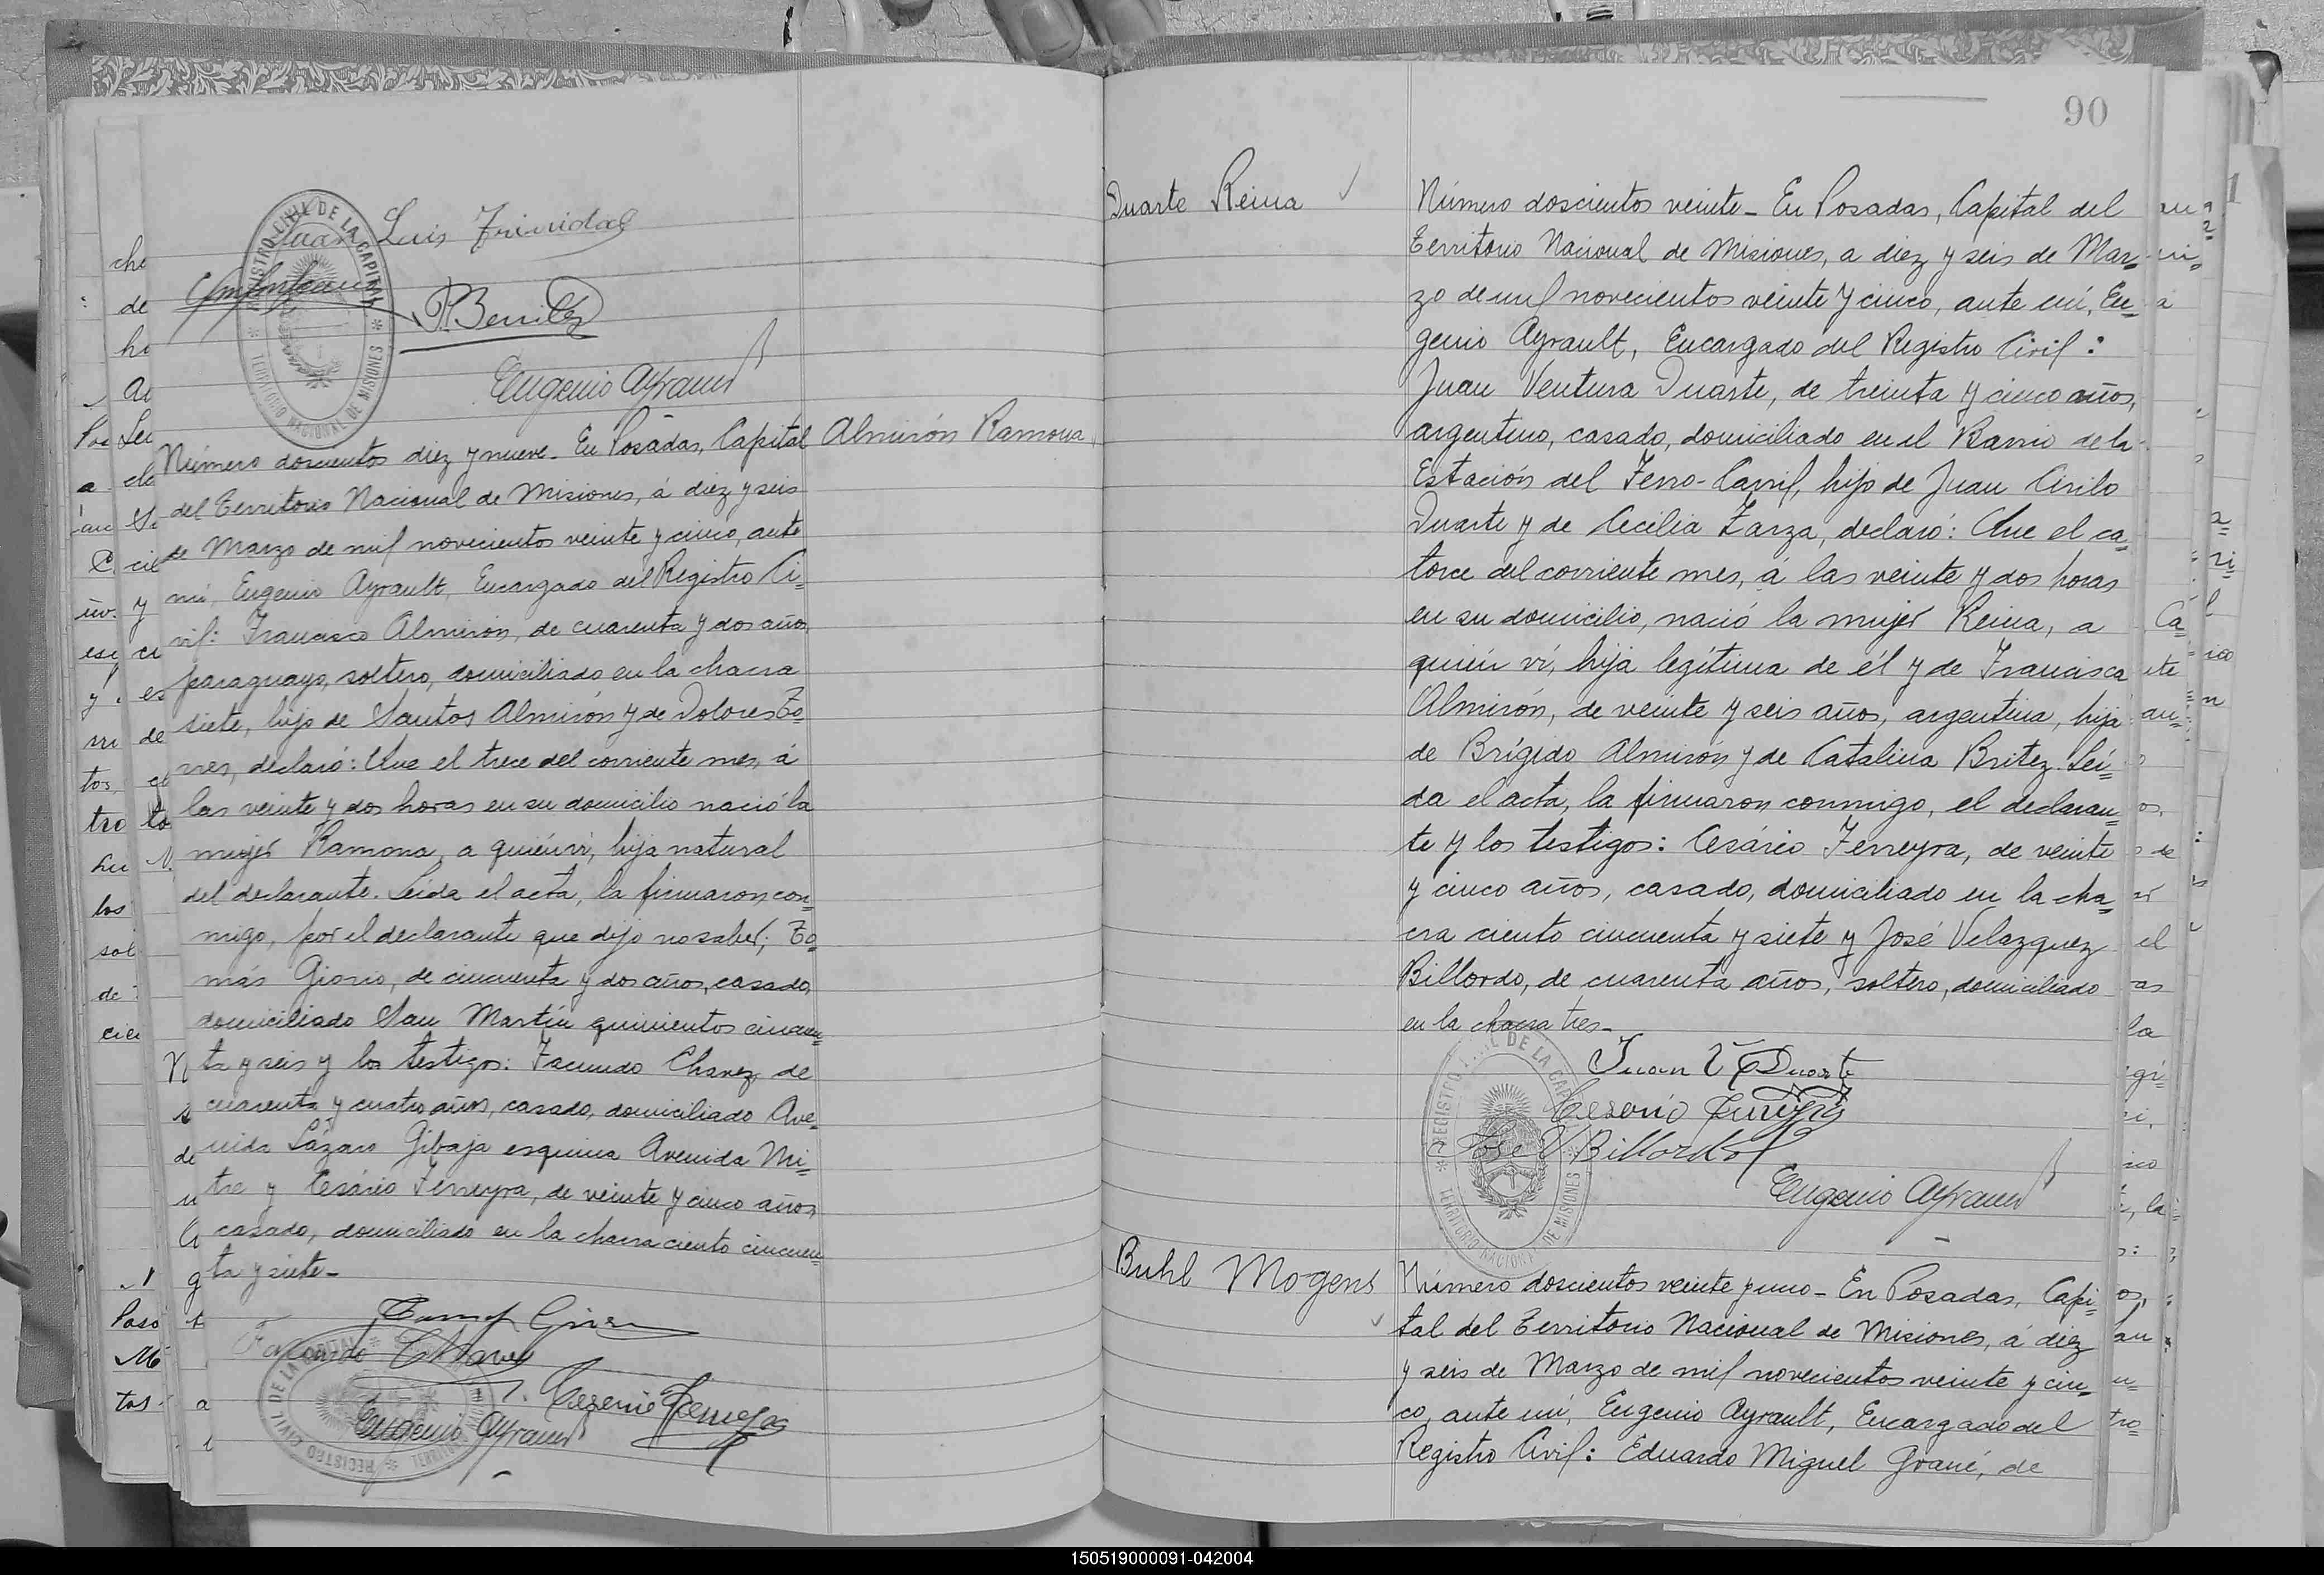 Juan Luis Trinidad
P. Benitez
Eugenio Ayrault
Número doscientos diez y nueve. En Posadas, Capital
Almirón Ramona
del Territorio Nacional de Misiones, á diez y seis
de Marzo de mil novecientos veinte y cinco, ante
mí, Eugenio Ayrault, Encargado del Registro Ci=
vil: Francisco Almirón, de cuarenta y dos años
paraguayo, soltero, domiciliado en la chacra
siete, hijo de Santos Almirón y de Dolores To=
rres, declaró: Que el trece del corriente mes, á
las veinte y dos horas en su domicilio nació la
mujer Ramona, a quién ví, hija natural
del declarante. Leída el acta, la firmaron con=
migo, por el declarante que dijo no saber, To=
más Giosio, de cincuenta y dos años, casado,
domiciliado San Martín quinientos cincuen=
ta y seis y los testigos: Facundo Chavez, de
cuarenta y cuatro años, casado, domiciliado Ave=
nida Lázaro Gibaja esquina Avenida Mi=
tre y Cesáreo Ferreyra, de veinte y cinco años,
casado, domiciliado en la chacra ciento cincuen=
ta y siete-
Facundo Chavez
Cesareo Ferreyra
Eugenio Ayrault
REGISTRO CIVIL DE LA CAPITAL
TERRITORIO NACIONAL DE MISIONES
90
Duarte Reina
Número doscientos veinte - En Posadas, Capital del
Territorio Nacional de Misiones, a diez y seis de Mar=
zo de mil novecientos veinte y cinco, ante mí, Eu=
genio Ayrault, Encargado del Registro Civil:
Juan Ventura Duarte, de treinta y cinco años,
argentino, casado, domiciliado en el Barrio de la
Estación del Ferro-Carril, hijo de Juan Cirilo
Duarte y de Cecilia Zarza, declaró: Que el ca=
torce del corriente mes, á las veinte y dos horas
en su domicilio, nació la mujer Reina, a
quién ví, hija legítima de él y de Francisca
Almirón, de veinte y seis años, argentina, hija
de Brígido Almirón y de Catalina Britez. Leí=
da el acta, la firmaron conmigo, el declaran=
te y los testigos: Cesáreo Ferreyra, de veinte
y cinco años, casado, domiciliado en la cha=
cra ciento cincuenta y siete y José Velazquez
Billordo, de cuarenta años, soltero, domiciliado
en la chacra tres-
Juan V Duarte
Cesareo Ferreyra
José V Billordo
Eugenio Ayrault
REGISTRO CIVIL DE LA CAPITAL
TERRITORIO NACIONAL DE MISIONES
Buhl Mogens
Número doscientos veinte y uno - En Posadas, Capi=
tal del Territorio Nacional de Misiones, á diez
y seis de Marzo de mil novecientos veinte y cin=
co, ante mí, Eugenio Ayrault, Encargado del
Registro Civil: Eduardo Miguel Grané, de
150519000091-042004